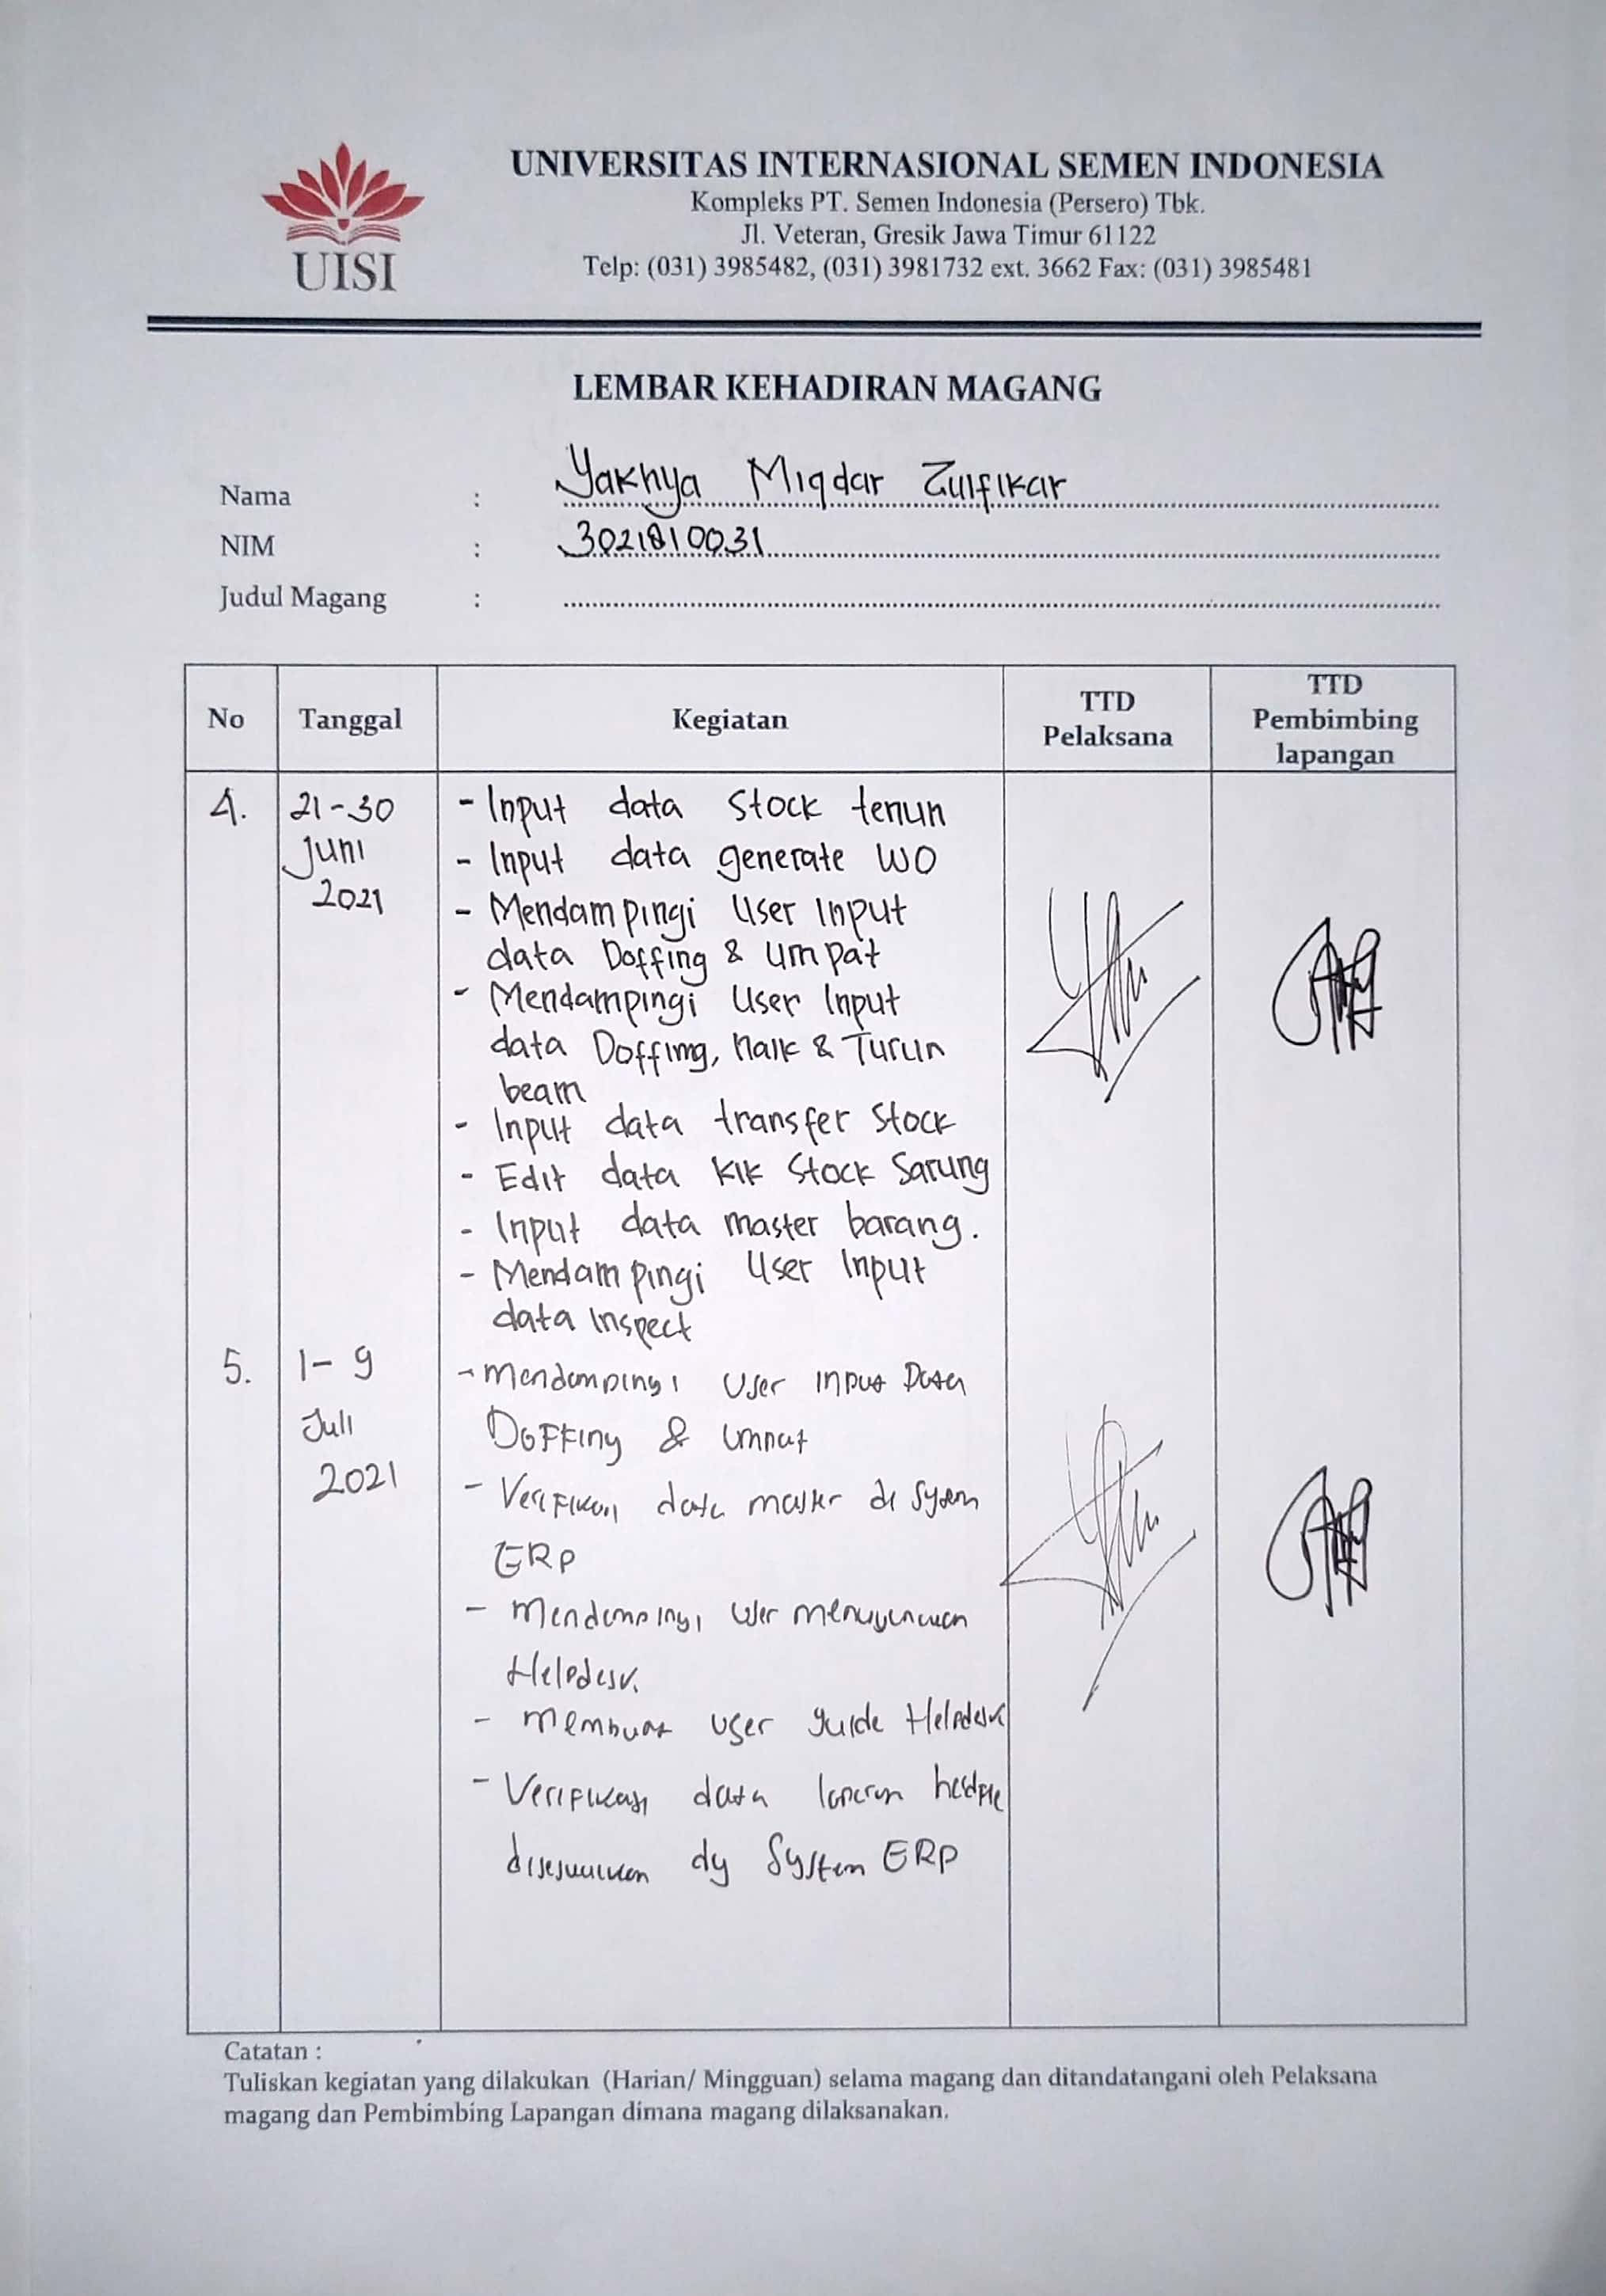 UISI
UNIVERSITAS INTERNASIONAL SEMEN INDONESIA
Kompleks PT. Semen Indonesia (Persero) Tbk.
Jl. Veteran, Gresik Jawa Timur 61122
Telp: (031) 3985482, (031) 3981732 ext. 3662 Fax: (031) 3985481
LEMBAR KEHADIRAN MAGANG
Nama : Yakhya Miqdar Zulfikar
NIM : 3021810031
Judul Magang :
No Tanggal Kegiatan TTD Pelaksana TTD Pembimbing lapangan
4. 21-30 Juni 2021
- Input data stock tenun
- Input data generate WO
- Mendampingi User Input
data Doffing & Umpat
- Mendampingi User Input
data Doffing, Naik & Turun
beam
- Input data transfer stock
- Edit data KIK Stock Sarung
- Input data master barang.
- Mendampingi User Input
data Inspect
5. 1-9 Juli 2021
- Mendampingi User Input Data
Doffing & Umpat
- Verifikasi data master di System
ERP
- Mendampingi User menggunakan
Helpdesk.
- Membuat user guide Helpdesk
- Verifikasi data laporan
disesuaikan dg System ERP
Catatan :
Tuliskan kegiatan yang dilakukan (Harian/ Mingguan) selama magang dan ditandatangani oleh Pelaksana
magang dan Pembimbing Lapangan dimana magang dilaksanakan.